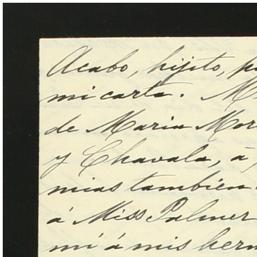 Acabo, hijito, p
mi carta. M
de Maria Mor
y Chavala, á
mias tambien
á Miss Palmer
mí á mis herm